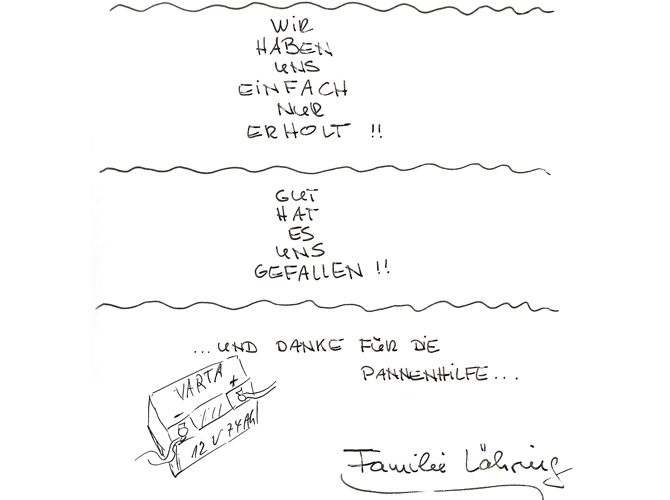 WiR
HABEN
UNS
EiNFACH
NUR
ERHOLT !!
GUT
HAT
ES
UNS
GEFALLEN !!
...UND DANKE FÜR DiE
PANNENHiLFE...
VARTA
- +
12 V 74Ah
Familie Löhring